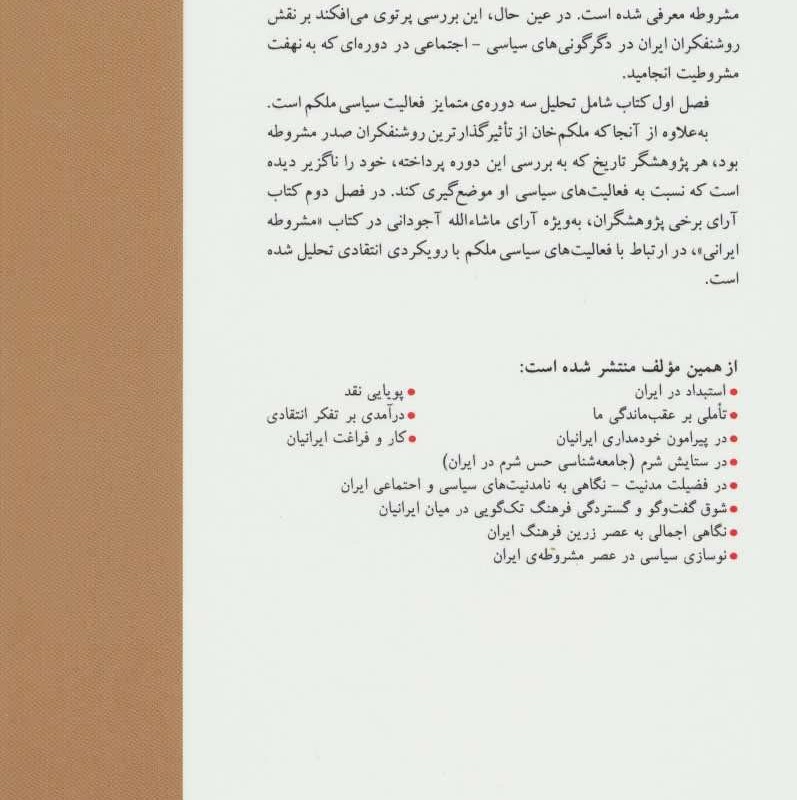 مشروطه معرفی شده است. در عین حال، این بررسی پرتوی می‌افکند بر نقش
روشنفکران ایران در دگرگونی‌های سیاسی - اجتماعی در دوره‌ای که به نهفت
مشروطیت انجامید.
فصل اول کتاب شامل تحلیل سه دوره‌ی متمایز فعالیت سیاسی ملکم است.
به‌علاوه از آنجا که ملکم‌خان از تأثیرگذارترین روشنفکران صدر مشروطه
بود، هر پژوهشگر تاریخ که به بررسی این دوره پرداخته، خود را ناگزیر دیده
است که نسبت به فعالیت‌های سیاسی او موضع‌گیری کند. در فصل دوم کتاب
آرای برخی پژوهشگران، به‌ویژه آرای ماشاءالله آجودانی در کتاب «مشروطه
ایرانی»، در ارتباط با فعالیت‌های سیاسی ملکم با رویکردی انتقادی تحلیل شده
است.
از همین مؤلف منتشر شده است:
● استبداد در ایران
● تأملی بر عقب‌ماندگی ما
● در پیرامون خودمداری ایرانیان
● در ستایش شرم (جامعه‌شناسی حس شرم در ایران)
● در فضیلت مدنیت - نگاهی به نامدنیت‌های سیاسی و اجتماعی ایران
● شوق گفت‌وگو و گستردگی فرهنگ تک‌گویی در میان ایرانیان
● نگاهی اجمالی به عصر زرین فرهنگ ایران
● نوسازی سیاسی در عصر مشروطه‌ی ایران
● پویایی نقد
● درآمدی بر تفکر انتقادی
● کار و فراغت ایرانیان